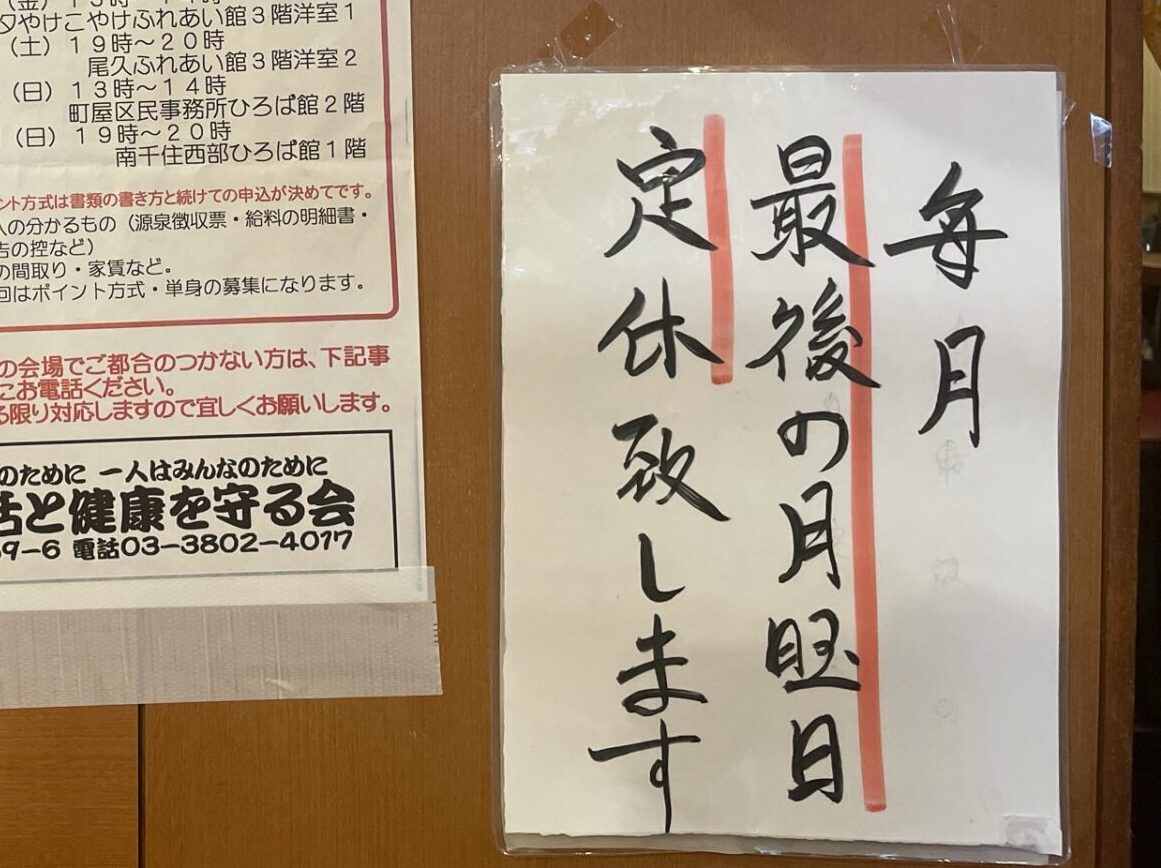 夕やけこやけふれあい館3階洋室1
（土）19時～20時
尾久ふれあい館3階洋室2
（日）13時～14時
町屋区民事務所ひろば館2階
（日）19時～20時
南千住西部ひろば館1階
ント方式は書類の書き方と続けての申込が決めてです。
の分かるもの（源泉徴収票・給料の明細書・
告の控など）
の間取り・家賃など。
回はポイント方式・単身の募集になります。
の会場でご都合のつかない方は、下記事
にお電話ください。
る限り対応しますので宜しくお願いします。
のために 一人はみんなのために
と健康を守る会
9-6 電話03-3802-4017
毎月
最後の月曜日
定休致します